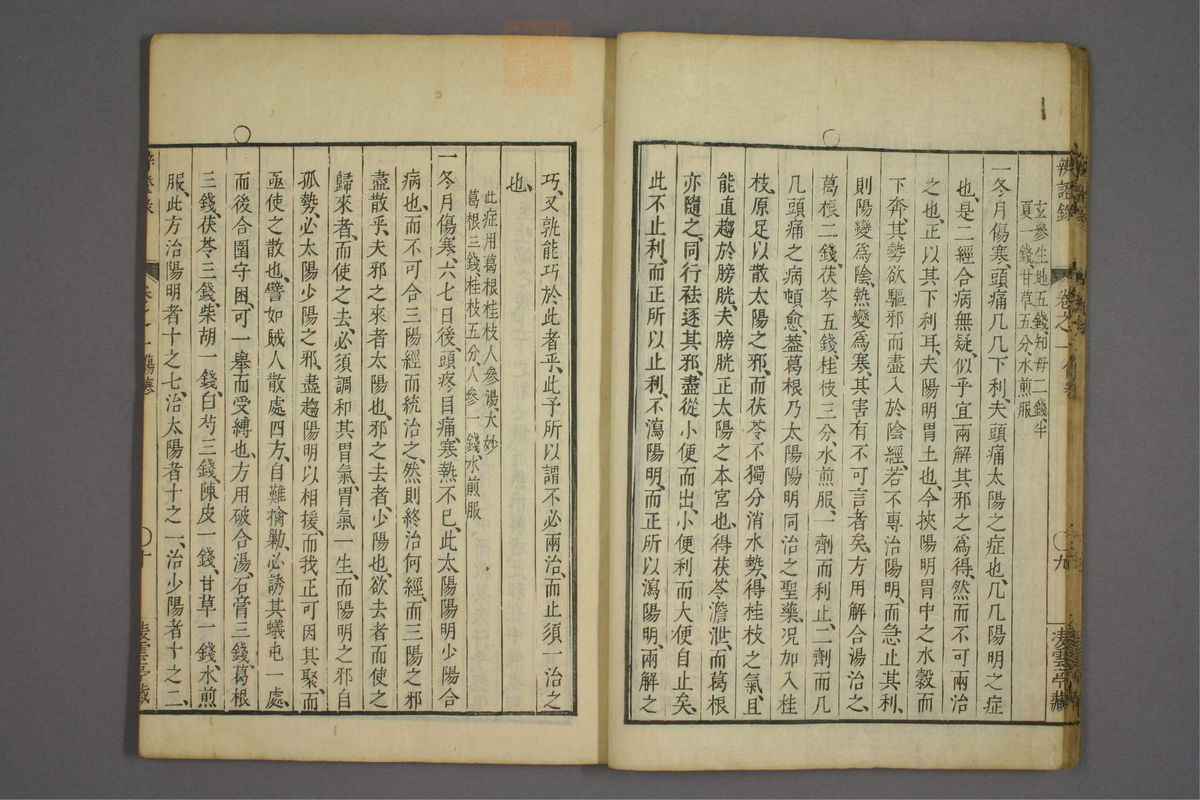 辨證錄 卷之一 傷寒 ○九 凌雲亭藏
玄參生地五錢知母二錢半
夏一錢甘草五分水煎服
一冬月傷寒、頭痛几几下利、夫頭痛太陽之症也、几几陽明之症
也、是二經合病無疑、似乎宜兩解其邪之爲得、然而不可兩治
之也、正以其下利耳、夫陽明胃土也、今挾陽明胃中之水穀而
下奔、其勢欲驅邪而盡入於陰經、若不專治陽明、而急止其利、
則陽變爲陰、熱變爲寒、其害有不可言者矣、方用解合湯治之、
葛根二錢、茯苓五錢、桂枝三分、水煎服、一劑而利止、二劑而几
几頭痛之病頓愈、葢葛根乃太陽陽明同治之聖藥、况加入桂
枝、原足以散太陽之邪、而茯苓不獨分消水勢、得桂枝之氣、且
能直趨於膀胱、夫膀胱正太陽之本宮也、得茯苓澹泄、而葛根
亦隨之、同行祛逐其邪、盡從小便而出、小便利而大便自止矣、
此不止利、而正所以止利、不瀉陽明、而正所以瀉陽明、兩解之
巧、又孰能巧於此者乎、此予所以謂不必兩治、而止須一治之
也、
此症用葛根桂枝人參湯、大妙
葛根三錢、桂枝五分、人參一錢、水煎服
一冬月傷寒、六七日後、頭疼目痛、寒熱不已、此太陽陽明少陽合
病也、而不可合三陽經而統治之、然則終治何經、而三陽之邪
盡散乎、夫邪之來者太陽也、邪之去者、少陽也、欲去者而使之
歸來者、而使之去、必須調和其胃氣、胃氣一生、而陽明之邪自
孤、勢必太陽少陽之邪、盡趨陽明以相援、而我正可因其聚、而
亟使之散也、譬如賊人散處四方、自難擒勦、必誘其蟻屯一處、
而後合圍守困、可一擧而受縛也、方用破合湯、石膏三錢、葛根
三錢、茯苓三錢、柴胡一錢、白芍三錢、陳皮一錢、甘草一錢、水煎
服、此方治陽明者十之七、治太陽者十之一、治少陽者十之二、
卷之一 傷寒 ○十 凌雲亭藏